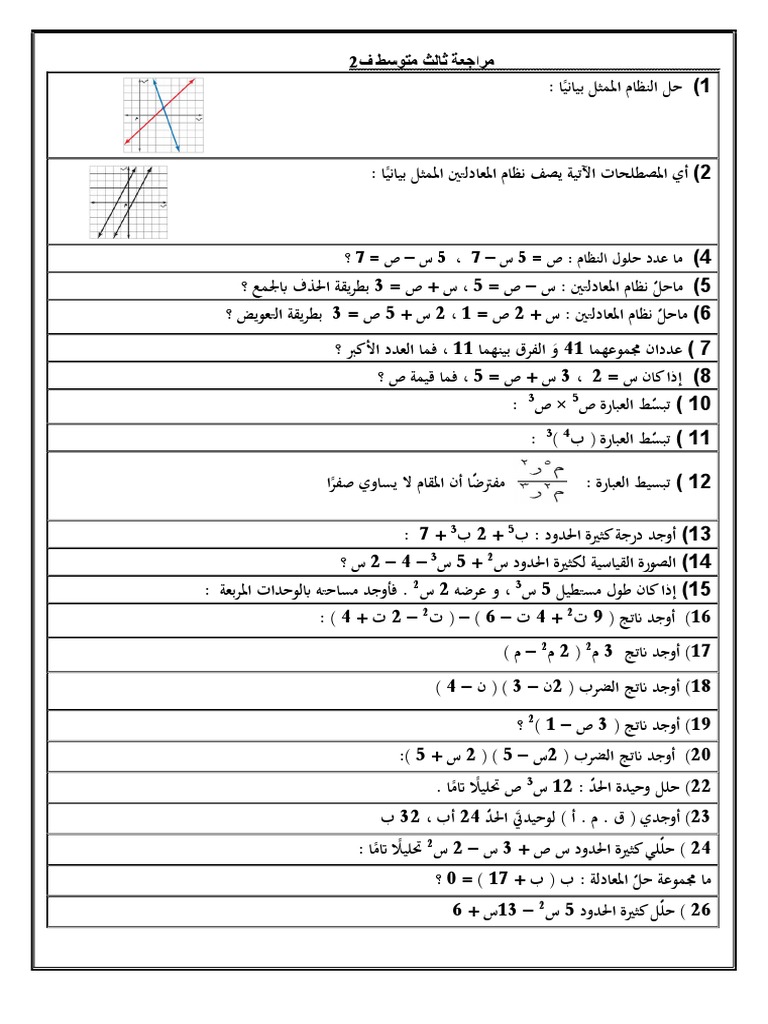 مراجعة ثالث متوسط ف2
1) حل النظام الممثل بيانيًا :
2) أي المصطلحات الآتية يصف نظام المعادلتين الممثل بيانيًا :
4) ما عدد حلول النظام : ص = 5 س – 7 ، 5 س – ص = 7 ؟
5) ماحلّ نظام المعادلتين : س – ص = 5 ، س + ص = 3 بطريقة الحذف بالجمع ؟
6) ماحلّ نظام المعادلتين : س + 2 ص = 1 ، 2 س + 5 ص = 3 بطريقة التعويض ؟
7 ) عددان مجموعهما 41 وَ الفرق بينهما 11 ، فما العدد الأكبر ؟
8) إذا كان س = 2 ، 3 س + ص = 5 ، فما قيمة ص ؟
10 ) تبسّط العبارة ص5 × ص3 :
11 ) تبسّط العبارة ( ب4 )3 :
12 ) تبسيط العبارة : م٥ر٢ / م٢ر٣ مفترضًا أن المقام لا يساوي صفرًا
13) أوجد درجة كثيرة الحدود : ب5 + 2 ب3 + 7 :
14) الصورة القياسية لكثيرة الحدود س2 + 5 س3 – 4 – 2 س ؟
15) إذا كان طول مستطيل 5 س3 ، و عرضه 2 س2 . فأوجد مساحته بالوحدات المربعة :
16) أوجد ناتج ( 9 ت2 + 4 ت – 6 ) – ( ت2 – 2 ت + 4 ) :
17) أوجد ناتج 3 م2 ( 2 م2 – م )
18) أوجد ناتج الضرب ( 2ن – 3 ) ( ن – 4 )
19) أوجد ناتج ( 3 ص – 1 )2 ؟
20) أوجد ناتج الضرب ( 2س – 5 ) ( 2 س + 5 ):
22) حلل وحيدة الحدّ : 12 س3 ص تحليلًا تامًا .
23) أوجدي ( ق . م . أ ) لوحيدتَي الحدّ 24 أب ، 32 ب
24 ) حلّلي كثيرة الحدود س ص + 3 س – 2 س2 تحليلًا تامًا :
ما مجموعة حلّ المعادلة : ب ( ب + 17 ) = 0 ؟
26 ) حلّل كثيرة الحدود 5 س2 – 13س + 6